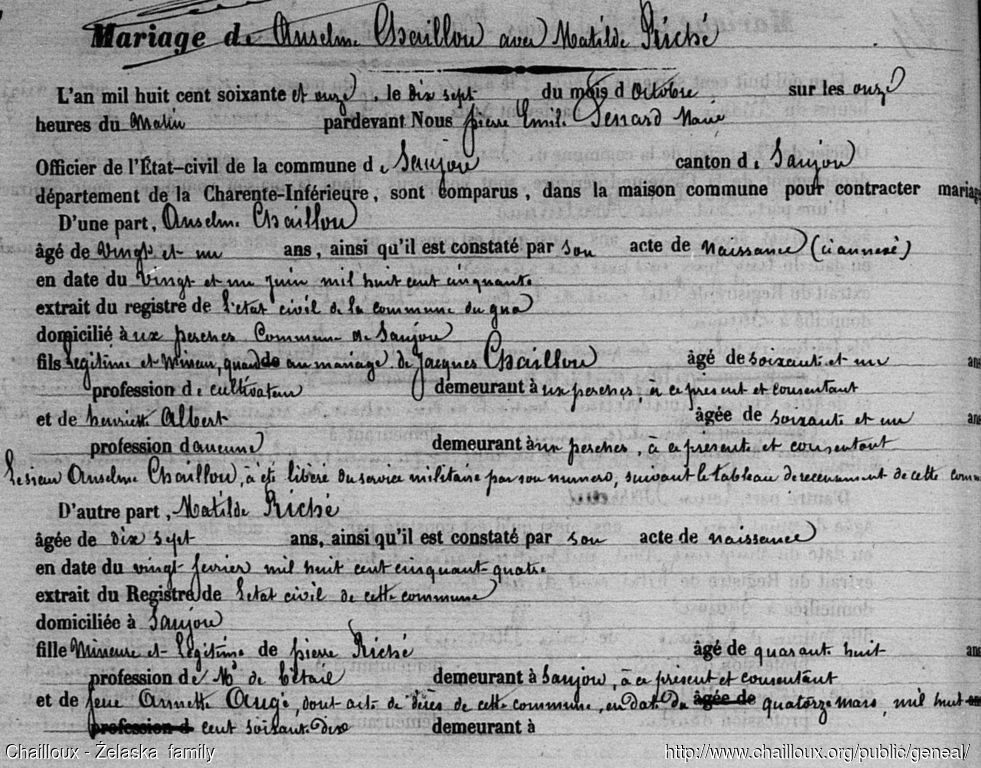 Mariage de Anselme Chaillou avec Matilde Riché
L'an mil huit cent soixante et onze, le dix sept du mois d'Octobre sur les onze
heures du Matin pardevant Nous pierre Emile Maire
Officier de l'État-civil de la commune de Saujon canton de Saujon
département de la Charente-Inférieure, sont comparus, dans la maison commune pour contracter mariag
D'une part, Anselme Chaillou
âgé de vingt et un ans, ainsi qu'il est constaté par son acte de naissance (ci annexé)
en date du vingt et un juin mil huit cent cinquante
extrait du registre de l'etat civil de la commune du gua
domicilié à ux perches Commune de Saujon
fils legitime et Mineur, quand au mariage de Jacques Chaillou âgé de soixante et un ans
profession de cultivateur demeurant à ux perches, à ce présent et consentant
et de henriette Albert âgée de soixante et un ans
profession d aucune demeurant à ux perches, à ce présente et consentant
Le sieur Anselme Chaillou, à été libéré du service militaire par son numero, suivant le tableau de recensement de cette comm
D'autre part, Matilde Riché
âgée de dix sept ans, ainsi qu'il est constaté par son acte de naissance
en date du vingt fevrier mil huit cent cinquant quatre
extrait du Registre de l'etat civil de cette commune
domiciliée à Saujon
fille Mineure et légitime de pierre Riché âgé de quarant huit ans
profession de Md de bétail demeurant à Saujon, à ce présent et consentant
et de feue Annette Augé, dont acte de décès de cette commune, en date du âgée de quatorze mars, mil huit
profession d cent soixant dix demeurant à
Chailloux - Želaska family http://www.chailloux.org/public/geneal/